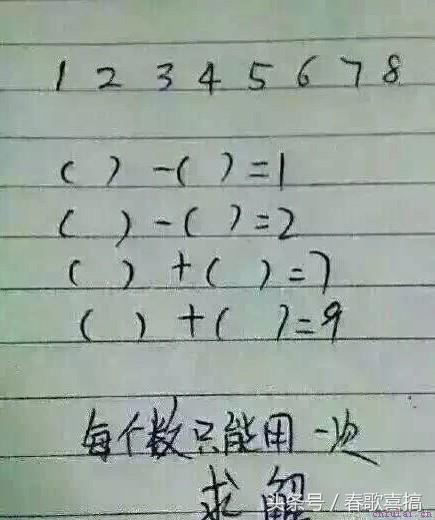 1 2 3 4 5 6 7 8
( ) - ( ) = 1
( ) - ( ) = 2
( ) + ( ) = 7
( ) + ( ) = 9
每个数只能用一次
求解
头条号 / 春歌喜搞